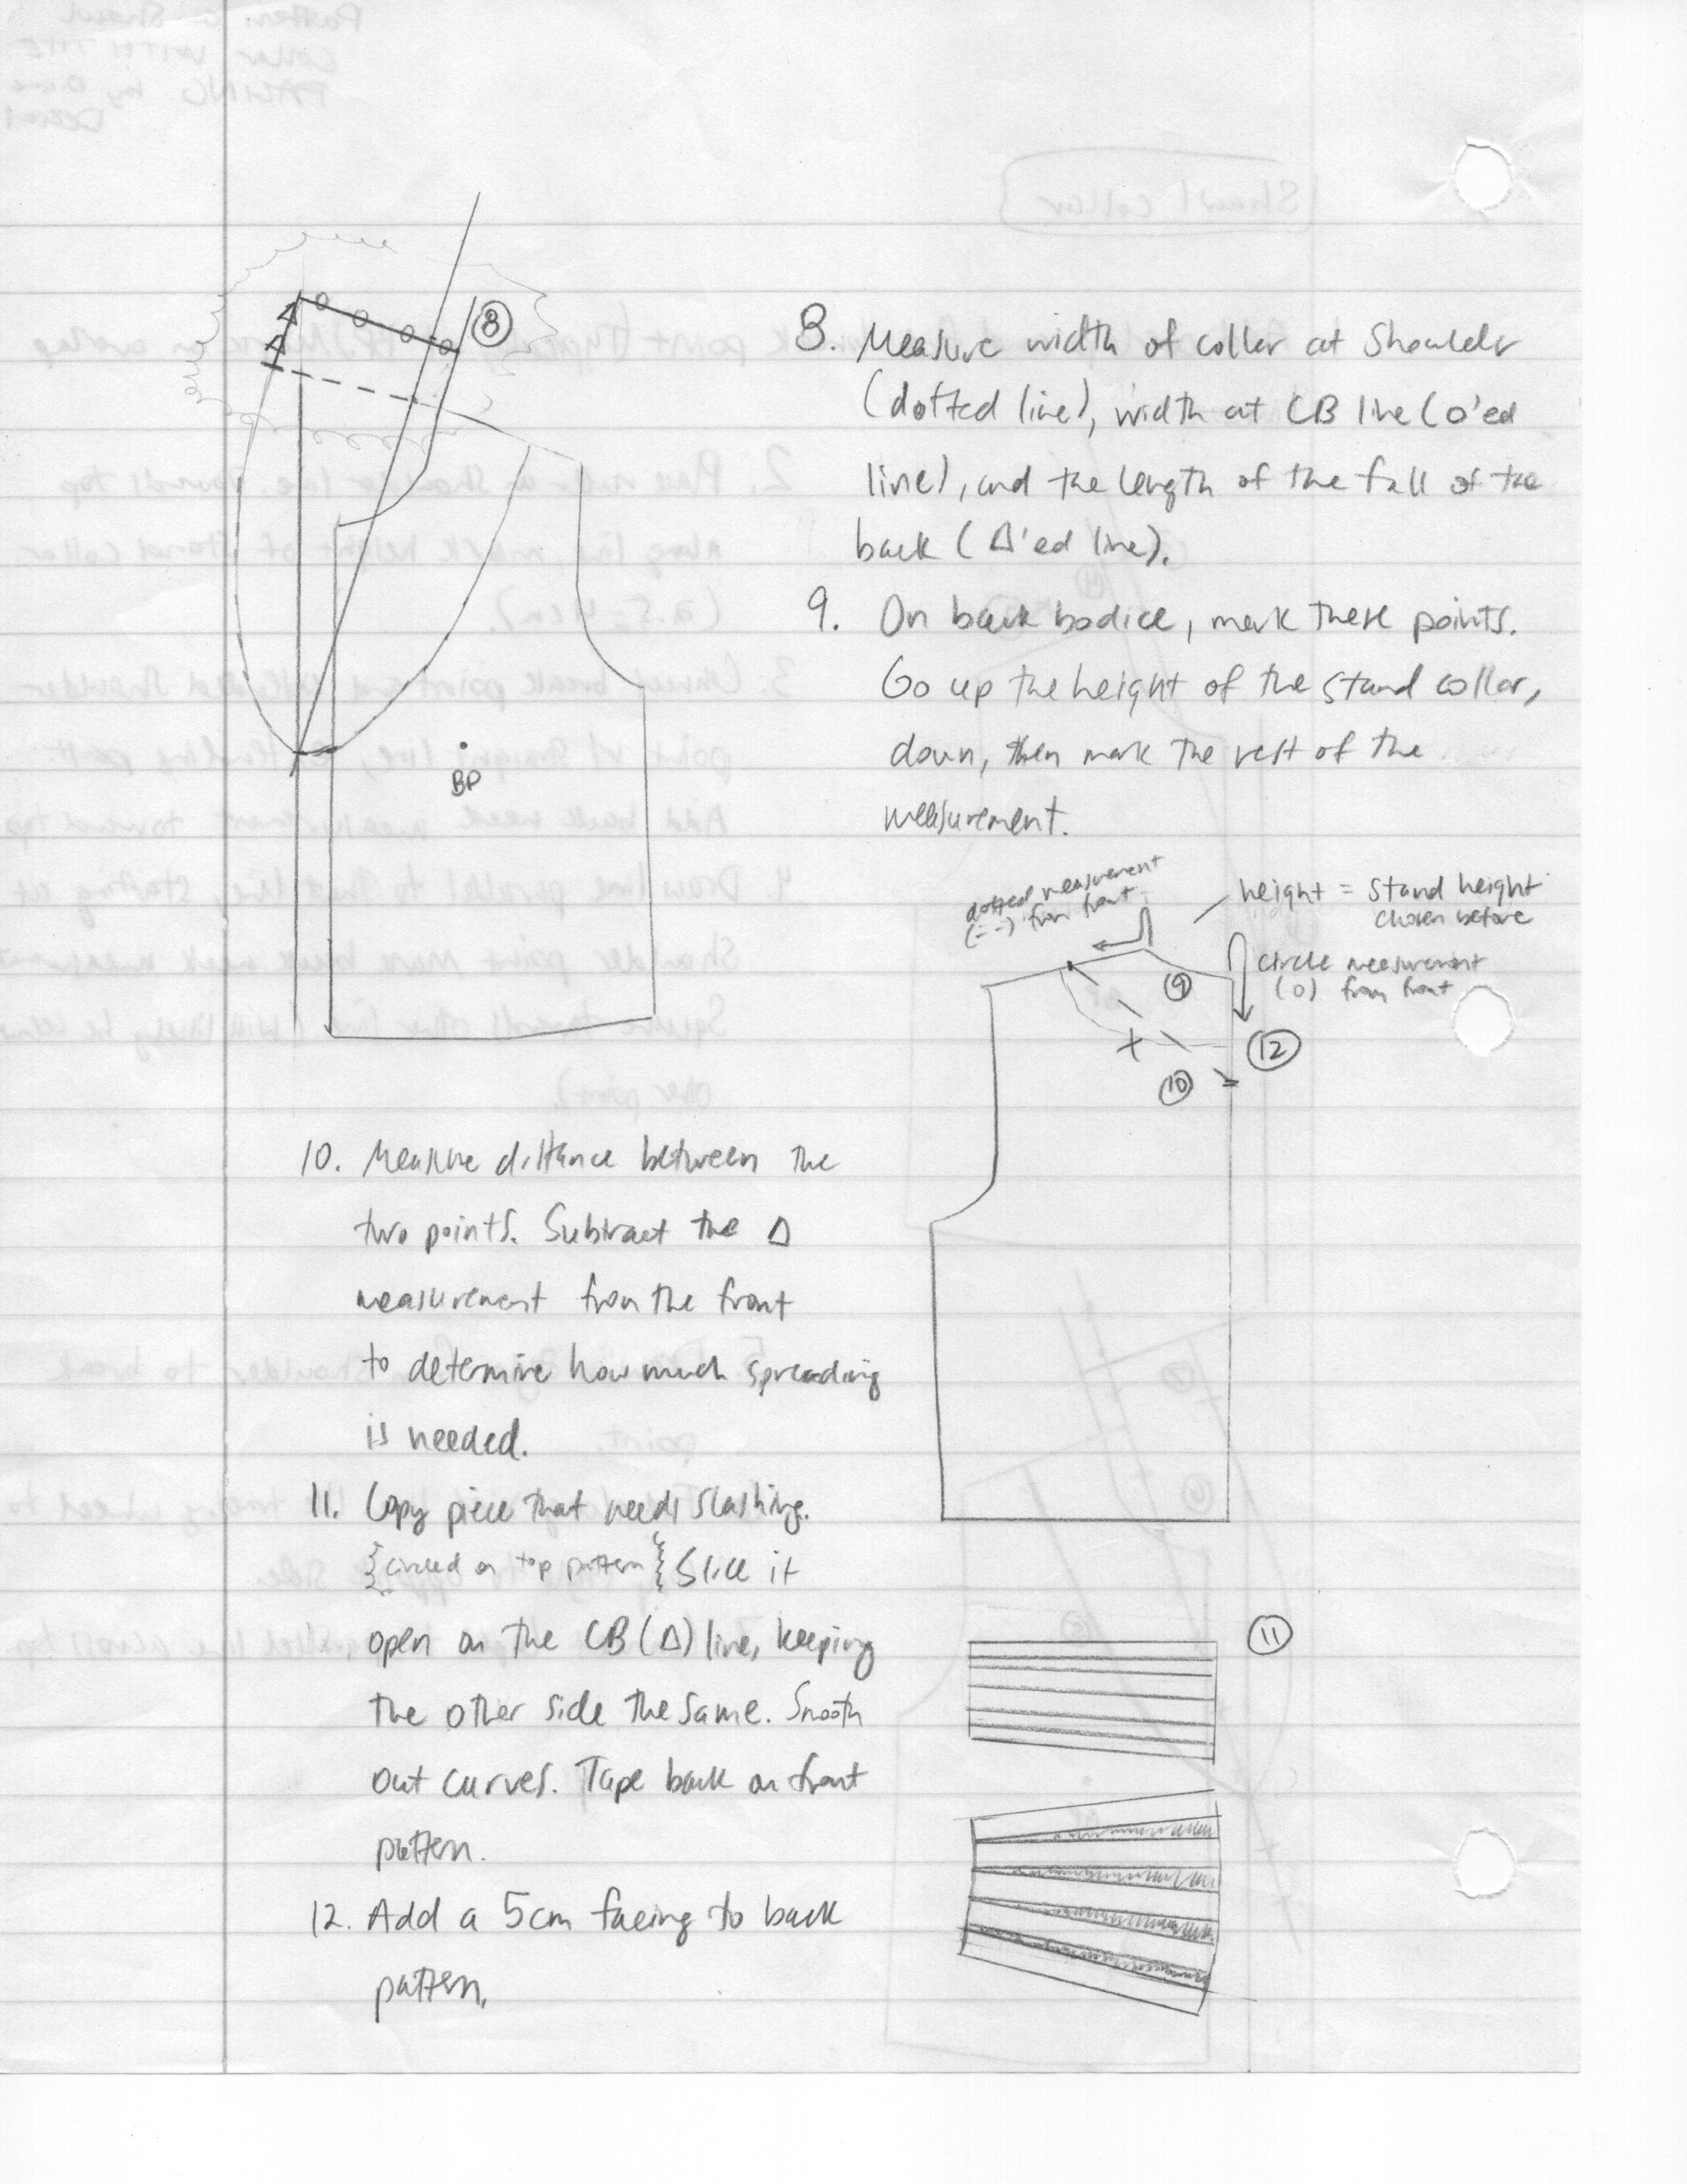 8
8. Measure width of collar at shoulder
(dotted line), width at CB line (o'ed
line), and the length of the fall of the
back (Δ'ed line).
9. On back bodice, mark these points.
Go up the height of the stand collar,
down, then mark the rest of the
measurement.
BP
dotted measurement
(--) from front
height = stand height
chosen before
circle measurement
(o) from front
9
12
10
10. Measure distance between the
two points. Subtract the Δ
measurement from the front
to determine how much spreading
is needed.
11. Copy piece that needs slashing.
{circled on top pattern} Slice it
open on the CB (Δ) line, keeping
the other side the same. Smooth
out curves. Tape back on front
pattern.
12. Add a 5cm facing to back
pattern.
11